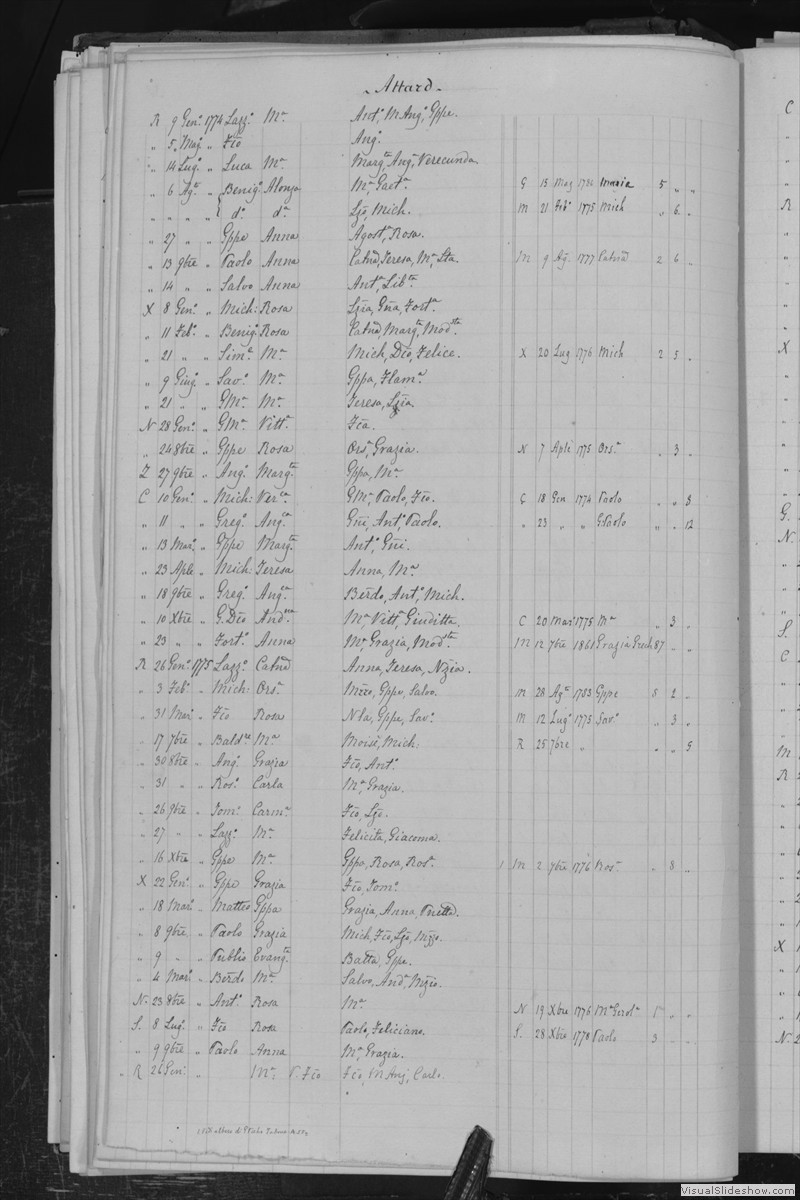 - Attard -
R 9 Genº 1774 Lazzº Mª Antº, M Angª, Gppe.
" 5 Magº " Fco Angª
" 14 Lugº " Luca Mª Margta, Angª, Verecunda.
" 6 Agto " Benigº Alonza Mª, Gaetª. G 15 Mag 1782 Maria 5 " "
" " " " dº dª Lzo, Mich. M 21 Febº 1775 Mich " 6 "
" 27 " " Gppe Anna Agostª, Rosa.
" 13 9bre " Paolo Anna Catna, Teresa, Mª, Sta. M 9 Ag. 1777 Catna 2 6 "
" 14 " " Salvo Anna Antª, Libta.
X 8 Genº " Mich: Rosa Lzia, Gna, Fortª.
" 11 Febº " Benigº Rosa Catna, Margta, Modsta
" 21 " " Simº Mª Mich, Dco, Felice. X 20 Lug 1776 Mich 2 5 "
" 9 Giugº " Savº Mª Gppa, Flamª.
" 21 " " GMª Mª Teresa, Lzia.
N 28 Genº " GMª Vittª Fca.
" 24 8bre " Gppe Rosa Orsª, Grazia. N 7 Aple 1775 Orsª " 3 "
Z 27 9bre " Angº Margta Gppa, Mª
C 10 Genº " Mich: Verca GMª, Paolo, Fco. C 18 Gen 1774 Paolo " " 8
" 11 " " Gregº Angca Gni, Antº, Paolo. " 23 " " GPaolo " " 12
" 13 Marº " Gppe Margta Antº, Gni.
" 23 Aple " Mich: Teresa Anna, Mª
" 18 9bre " Gregº Angca Berdo, Antº, Mich.
" 10 Xbre " G.Dco Andna Mª, Vittª, Giuditta. C 20 Mar 1775 Mª " 3 "
" 23 " " Fortº Anna Mª, Grazia, Modta. M 12 7bre 1861 Grazia Grech 87 " "
R 26 Genº 1775 Lazzº Catna Anna, Teresa, Nzia.
" 3 Febº " Mich: Orsª Mzzo, Gppe, Salvo. M 28 Agto 1783 Gppe 8 2 "
" 31 Marº " Fco Rosa Nla, Gppe, Savº. M 12 Lugº 1775 Savº " 3 "
" 17 7bre " Baldre Mª Moisè, Mich: R 25 7bre " " " 9
" 30 8bre " Angº Grazia Fco, Antº.
" 31 " " Rosº Carla Mª, Grazia.
" 26 9bre " Tomº Carmª Fco, Lzo.
" 27 " " Lazzº Mª Felicita, Giacoma.
" 16 Xbre " Gppe Mª Gppa, Rosa, Rosª. M 2 7bre 1776 Rosª " 8 "
X 22 Genº " Gppe Grazia Fco, Tomº.
" 18 Marº " Matteo Gppa Grazia, Anna,
" 8 9bre " Paolo Grazia Mich, Fco, Lzo, Mzzo.
" 9 " " Publio Evangta Batta, Gppe.
" 4 Marº " Berdo Mª Salvo, Andª, Nzio.
N 23 8bre " Antº Rosa Mª N 19 Xbre 1776 Mª Gerolª 1 " "
S. 8 Lugº " Fco Rosa Paolo, Feliciano. S. 28 Xbre 1778 Paolo 3 " "
" 9 9bre " Paolo Anna Mª, Grazia.
" R 26 Genº " Mª P. Fco Fco, M Angª, Carlo.
VisualSlideshow.com